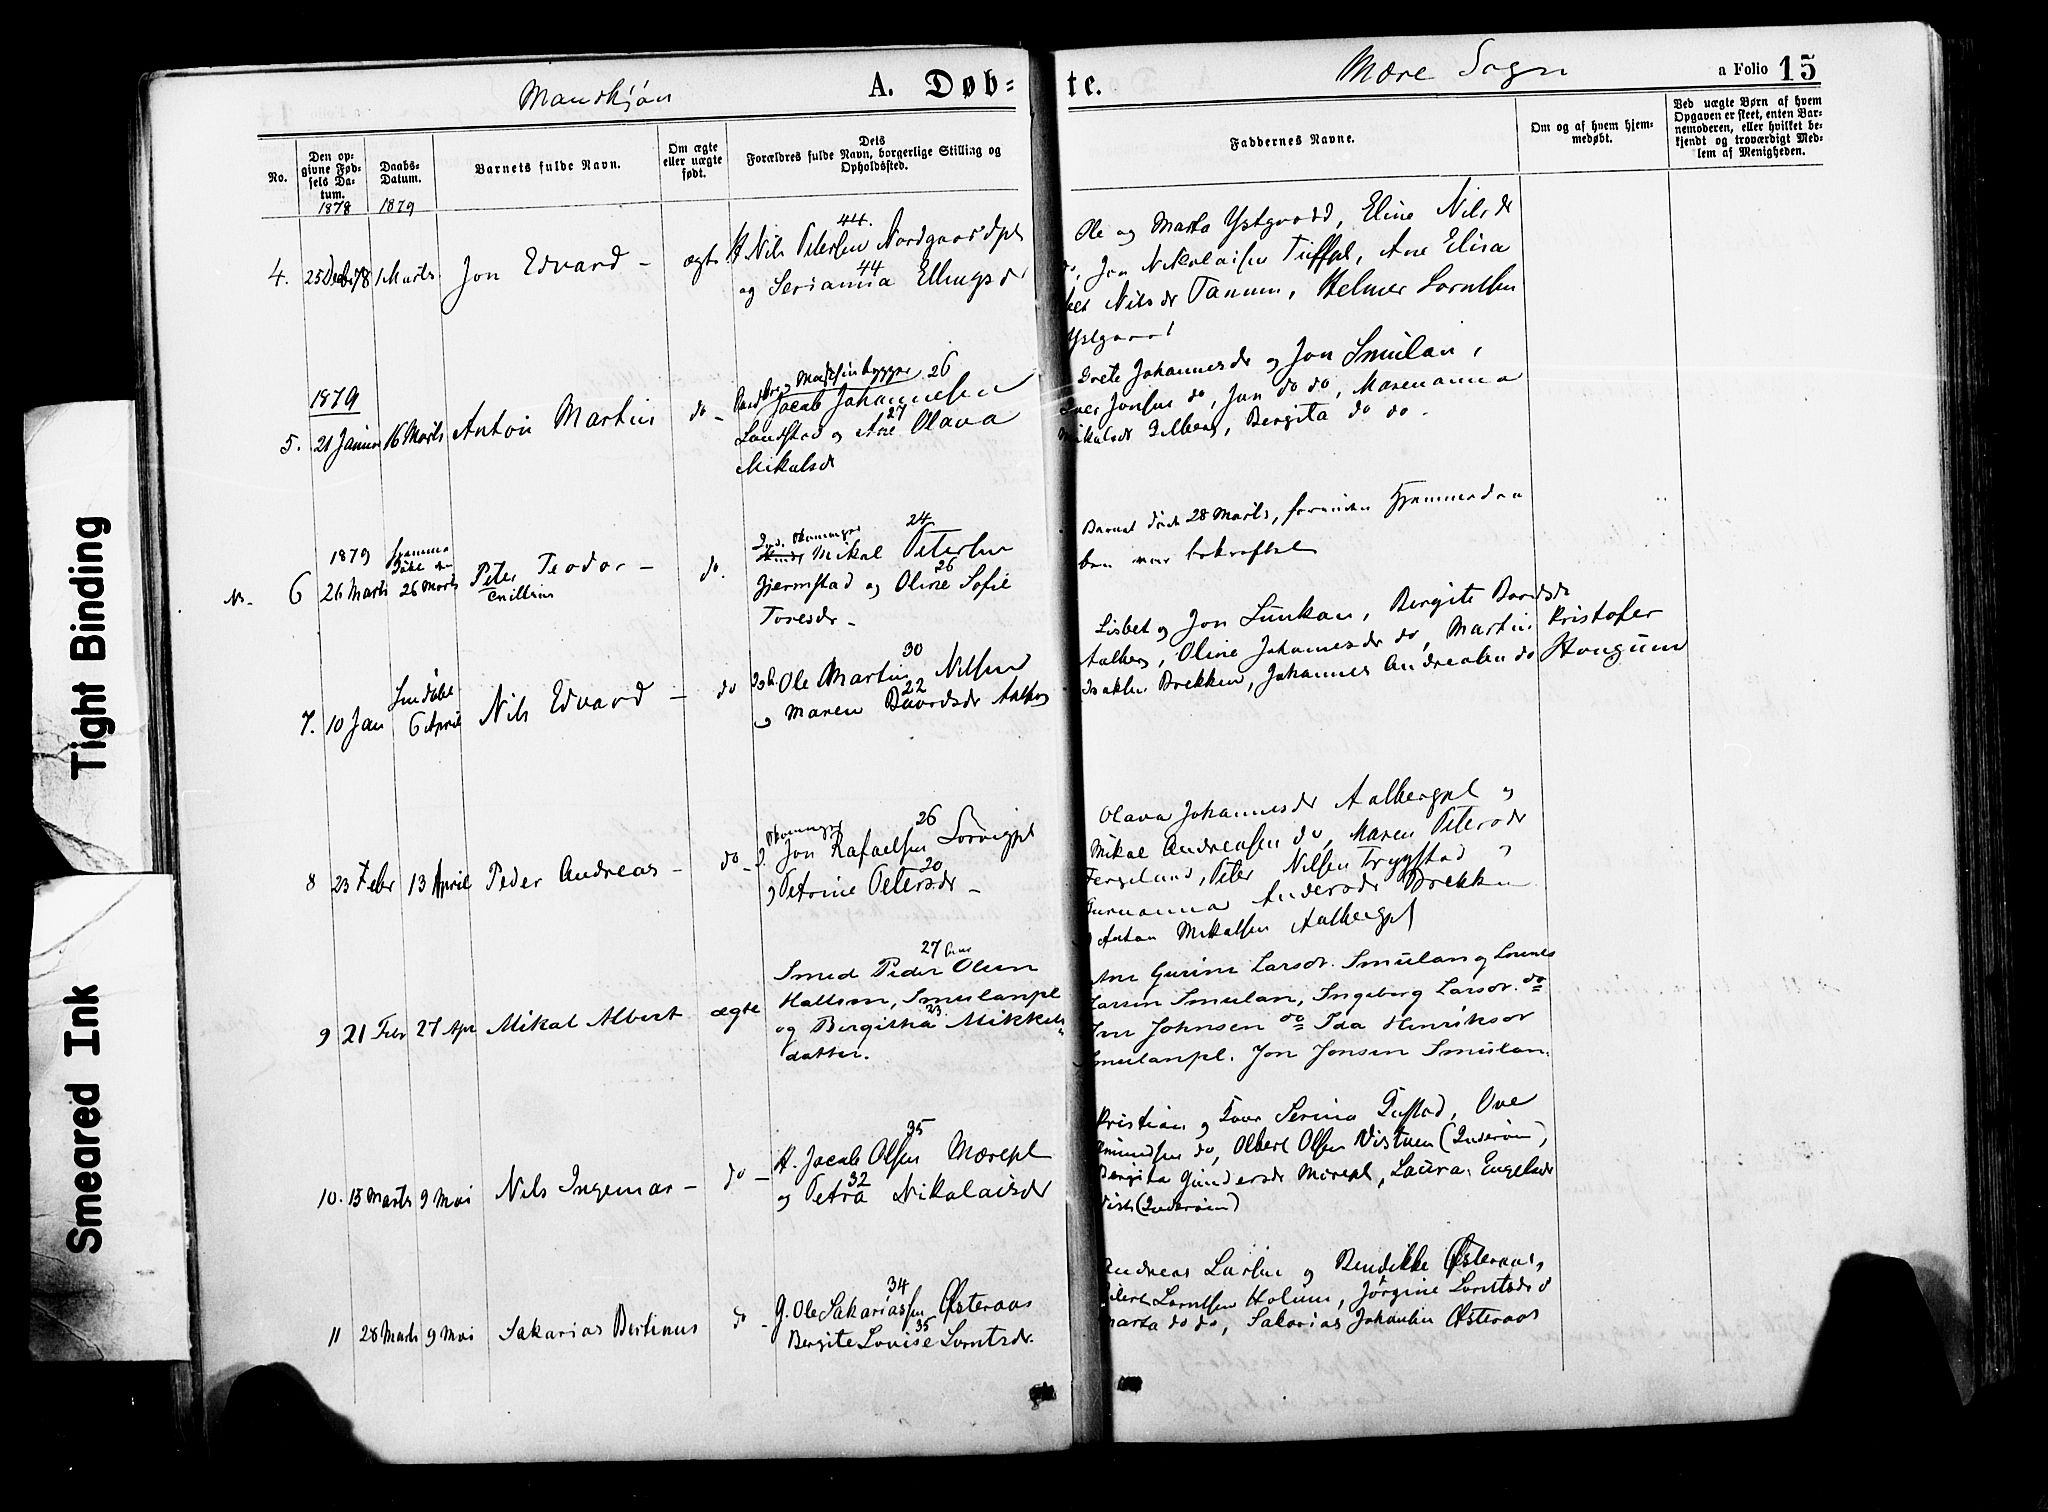 Mandkjøn
A. Døb-
te.
Mære Sogn
a Folio 15
No.
Den op-
givne Fød-
sels Da-
tum.
1878
Daabs-
Datum.
1879
Barnets fulde Navn.
Om ægte
eller uægte
født.
Dets
Forældres fulde Navn, borgerlige Stilling og
Opholdssted.
Faddernes Navne.
Om og af hvem hjem-
medøbt.
Ved uægte Børn af hvem
Opgaven er skeet, enten Bar-
nemoderen, eller hvilket be-
kjendt og troværdigt Med-
lem af Menigheden.
4. 25 Decbr 78 1 Marts Jon Edvard – ægte
44.
H Nils Petersen Nordgaardpl
44
og Serianna Ellingsdr
Ole og Marta Ystgaard, Eline Nilsdr
do, Jon Nikolaisen Tuftpl, Ane Elisa
bet Nilsdr Tanum, Helmer Lorntsen
Ystgaard
1879
5. 21 Januar 16 Marts Anton Martin do –
Maskinbygger 26
Jacob Johannesen
27
Landstad og Ane Olava
Mikalsdr
Grete Johannesdr og Jon Smulan,
Iver Jonsen do, Jon do do, Marenanna
Mikalsdr Dilberg, Bergita do do.
Nb. 6
1879
26 Marts
Hjemme
døbt den
26 Marts
Peter Teodor –
do.
24
Mikal Petersen
26
Gjermstad og Oline Sofie
Toresdr –
Barnet døde 28 Marts, forinden Hjemmedaa
ben var bekræftet
7. 10 Jan
6 April
Nils Edvard –
do
30
Ole Martin Nilsen
22
og Maren Baardsdr Aalberg
Lisbet og Jon Lunkan, Bergite Bardsdr
Aalberg, Oline Johannesdr do, Martin Kristofer
Isaksen Brekken, Johannes Andreasen do Haugum
8 23 Febr 13 April Peder Andreas – do –
26
Jon Rafaelsen Lorvigpl
20
og Petrine Petersdr –
Olava Johannesdr Aalbergpl og
Mikal Andreasen do, Maren Petersdr
Fergeland, Peter Nilsen Trygstad,
Gurianna Andersdr Brekken
Anton Mikalsen Aalbergpl
9 21 Febr 27 Apr Mikal Albert ægte
27 Aar
Smed Peder Olsen
Hallsem, Smulanpl
23
og Bergitha Mikkels
datter.
Ane Gurine Larsdr. Smulan og Lornts
Larsen Smulan, Ingeborg Larsdr. do
Iver Johnsen do Ida Henriksdr
Smulanpl. Jon Jonsen Smulan.
10. 13 Marts 9 Mai Nils Ingemar – do –
35
H. Jacob Olsen Mærepl
32
og Petra Nikolaisdr
Kristian og Sara Serina Tufstad, Ove
Amundsen do, Olbert Olsen Vistuen (Inderøen),
Bergita Gundersdr Mærepl, Laura Engelsdr
Vist (Inderøen)
11 28 Marts 9 Mai Sakarias Bertinus do –
34
G. Ole Sakariassen Østeraas
35
Bergite Lovise Lorntsdr.
Andreas Larsen og Bendikke Østeraas,
Eilert Lorntsen Holum, Jørgine Lorntsdr d
Marta do do, Sakarias Johansen Østeraas
Tight Binding
Smeared Ink